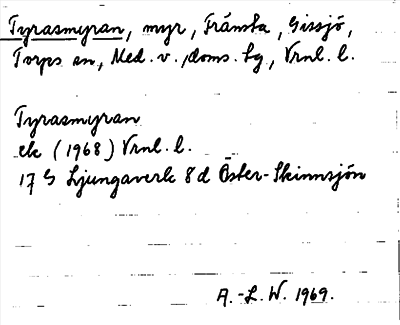 Tyrasmyran, myr, Fränsta, Gissjö,
Torps sn, Med. v. doms. hg, Vrnl. l.
Tyrasmyran
ek (1968) Vrnl. l.
17 G Ljungaverk 8d Öster-Skinnsjön
A.-L. W. 1969.